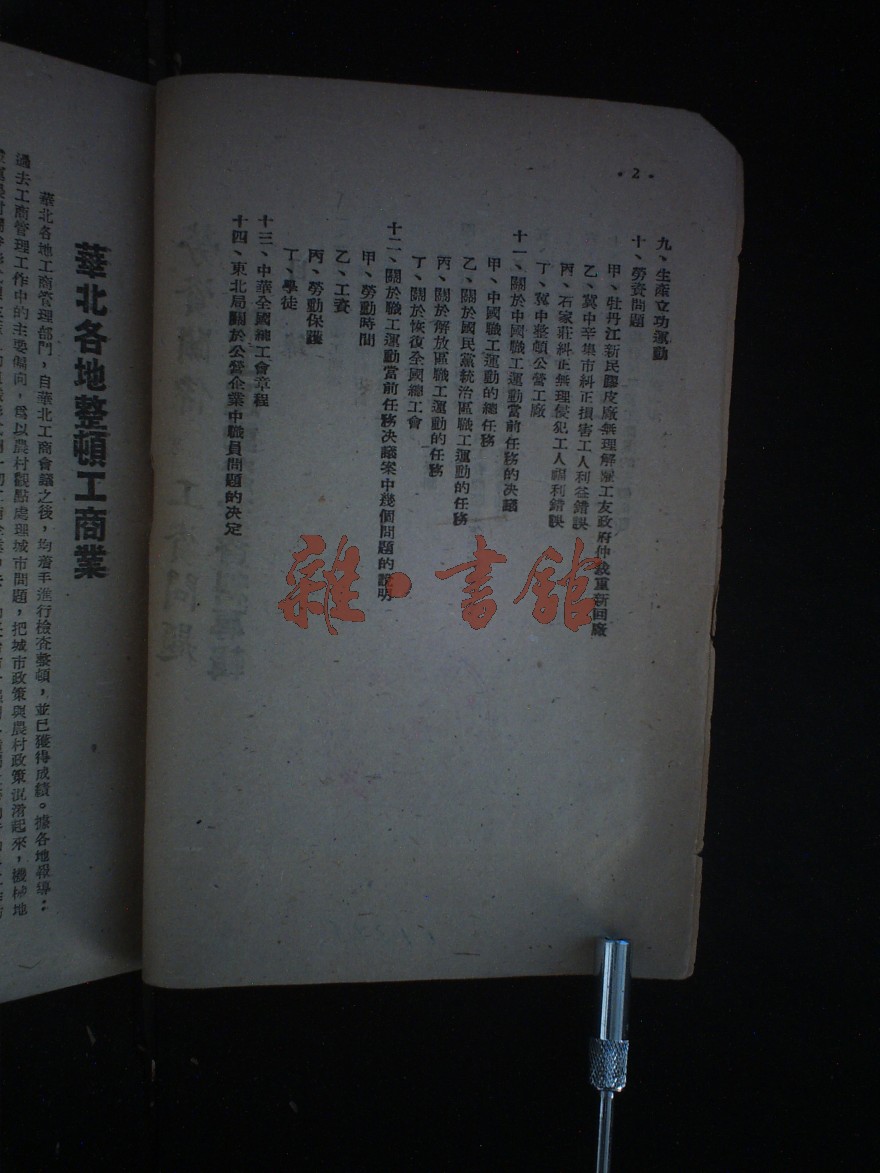 • 2 •
九、生產立功運動
十、勞資問題
甲、牡丹江新民膠皮廠無理解雇工友政府仲裁重新回廠
乙、冀中辛集市糾正損害工人利益錯誤
丙、石家莊糾正無理侵犯工人福利錯誤
丁、冀中整頓公營工廠
十一、關於中國職工運動當前任務的決議
甲、中國職工運動的總任務
乙、關於國民黨統治區職工運動的任務
丙、關於解放區職工運動的任務
丁、關於恢復全國總工會
十二、關於職工運動當前任務决議案中幾個問題的說明
甲、勞動時間
乙、工資
丙、勞動保護
丁、學徒
十三、中華全國總工會章程
十四、東北局關於公營企業中職員問題的决定
雜·書館
華北各地整頓工商業
華北各地工商管理部門，自華北工商會議之後，均着手進行檢查整頓，並已獲得成績。據各地報導：
過去工商管理工作中的主要偏向，爲以農村觀點處理城市問題，把城市政策與農村政策混淆起來，機械地